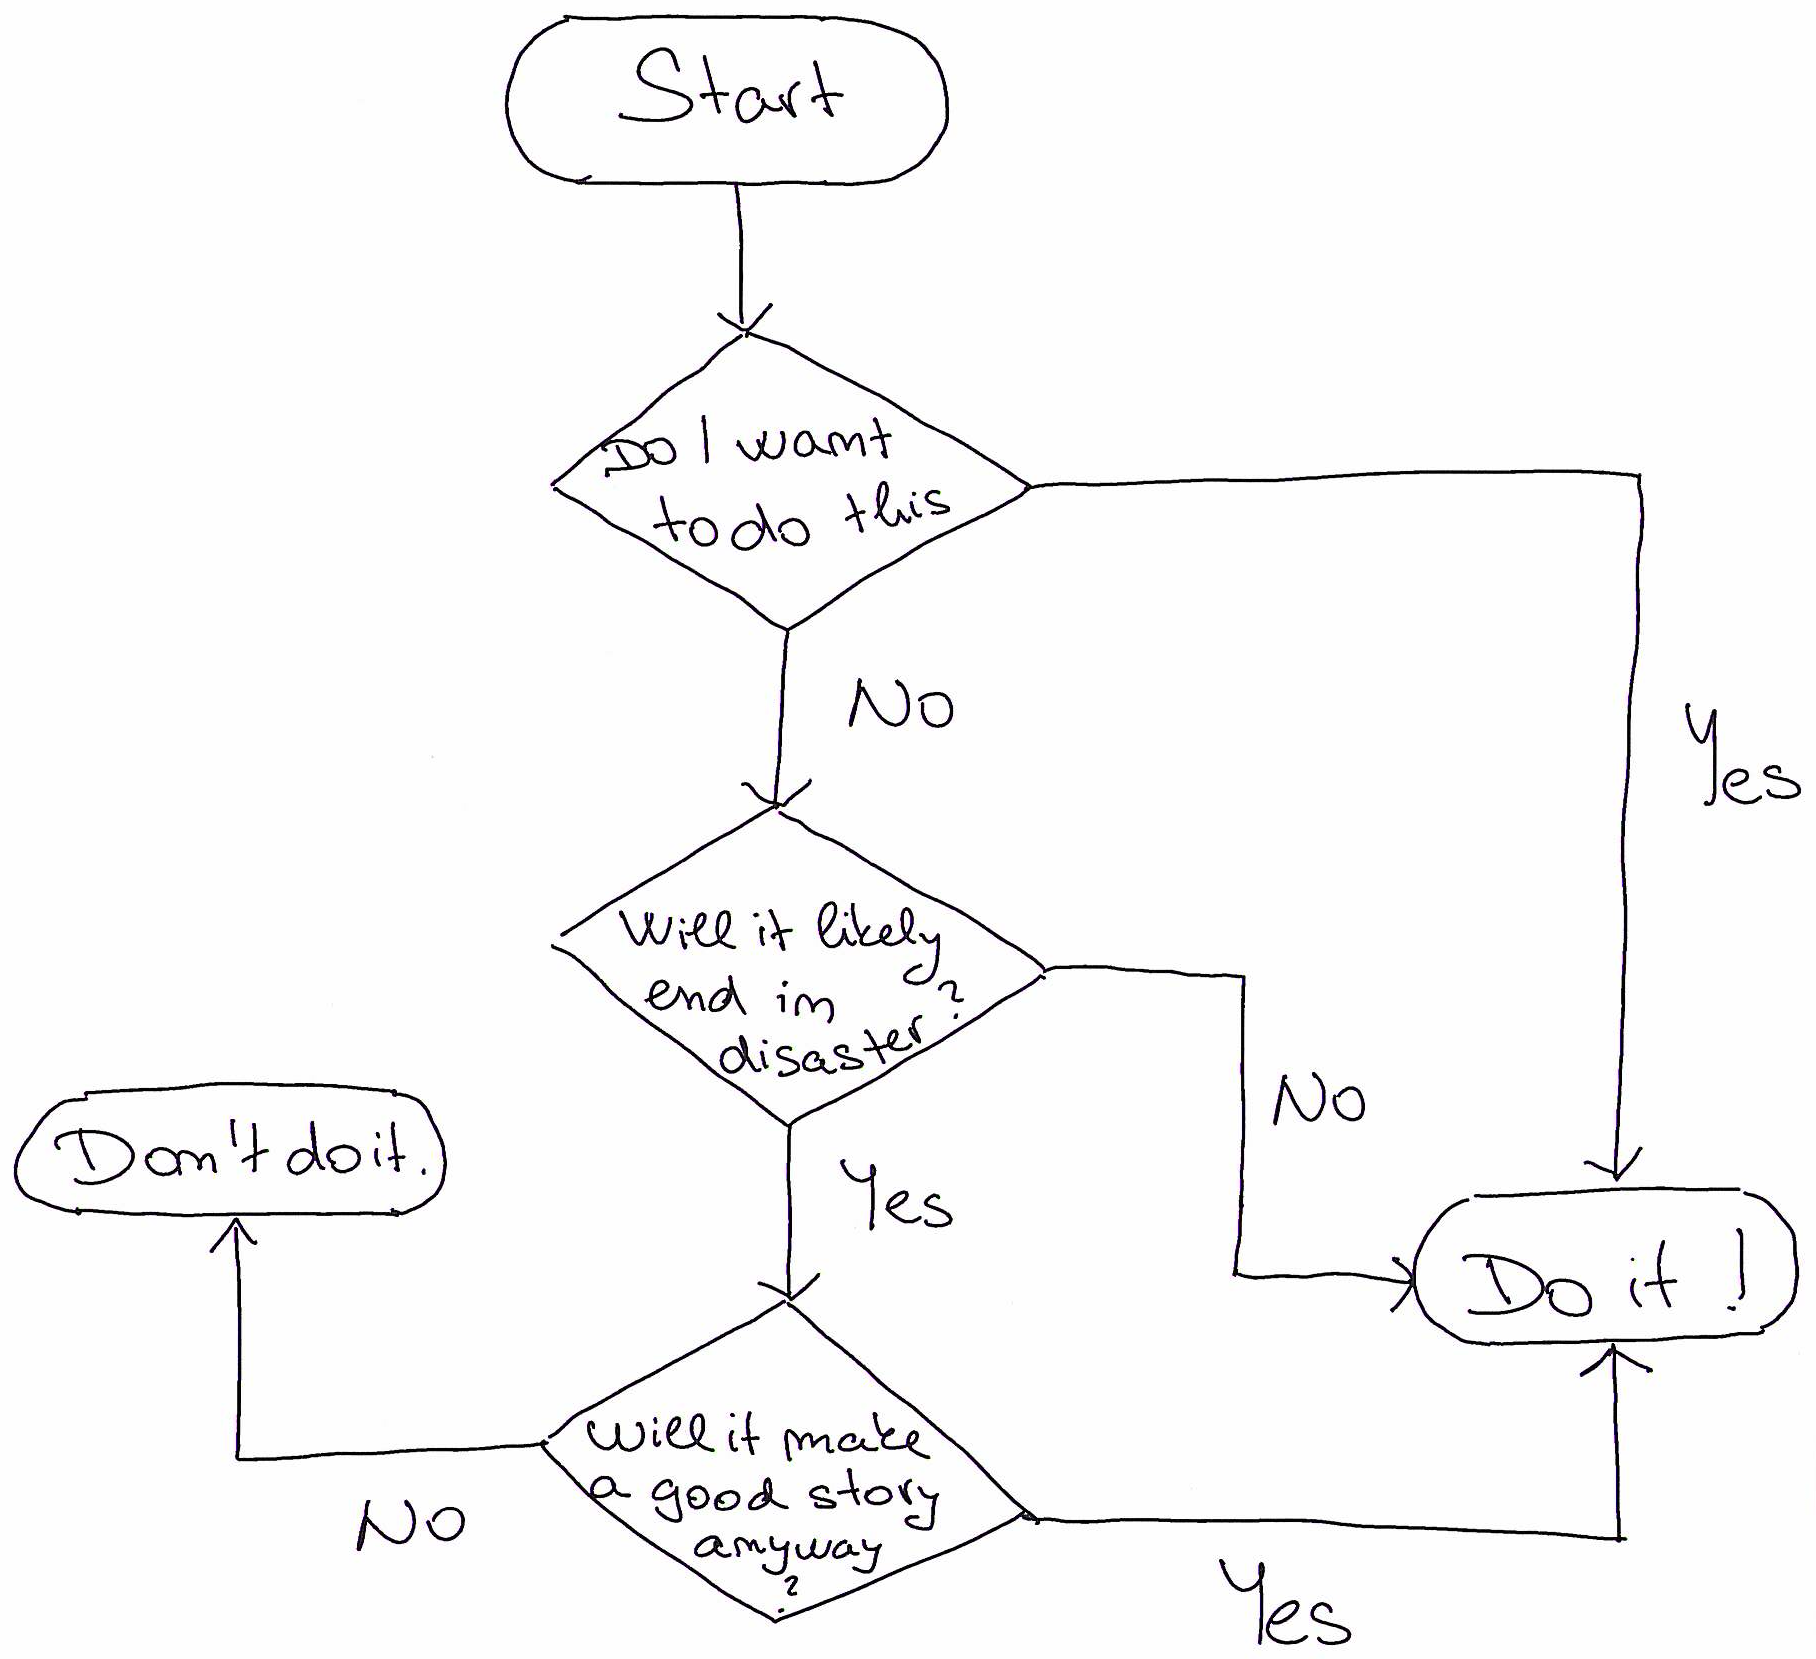 Start
Do I want
to do this
No
Yes
Will it likely
end in
disaster?
No
Don't do it.
Yes
Do it!
Will it make
a good story
anyway
?
No
Yes